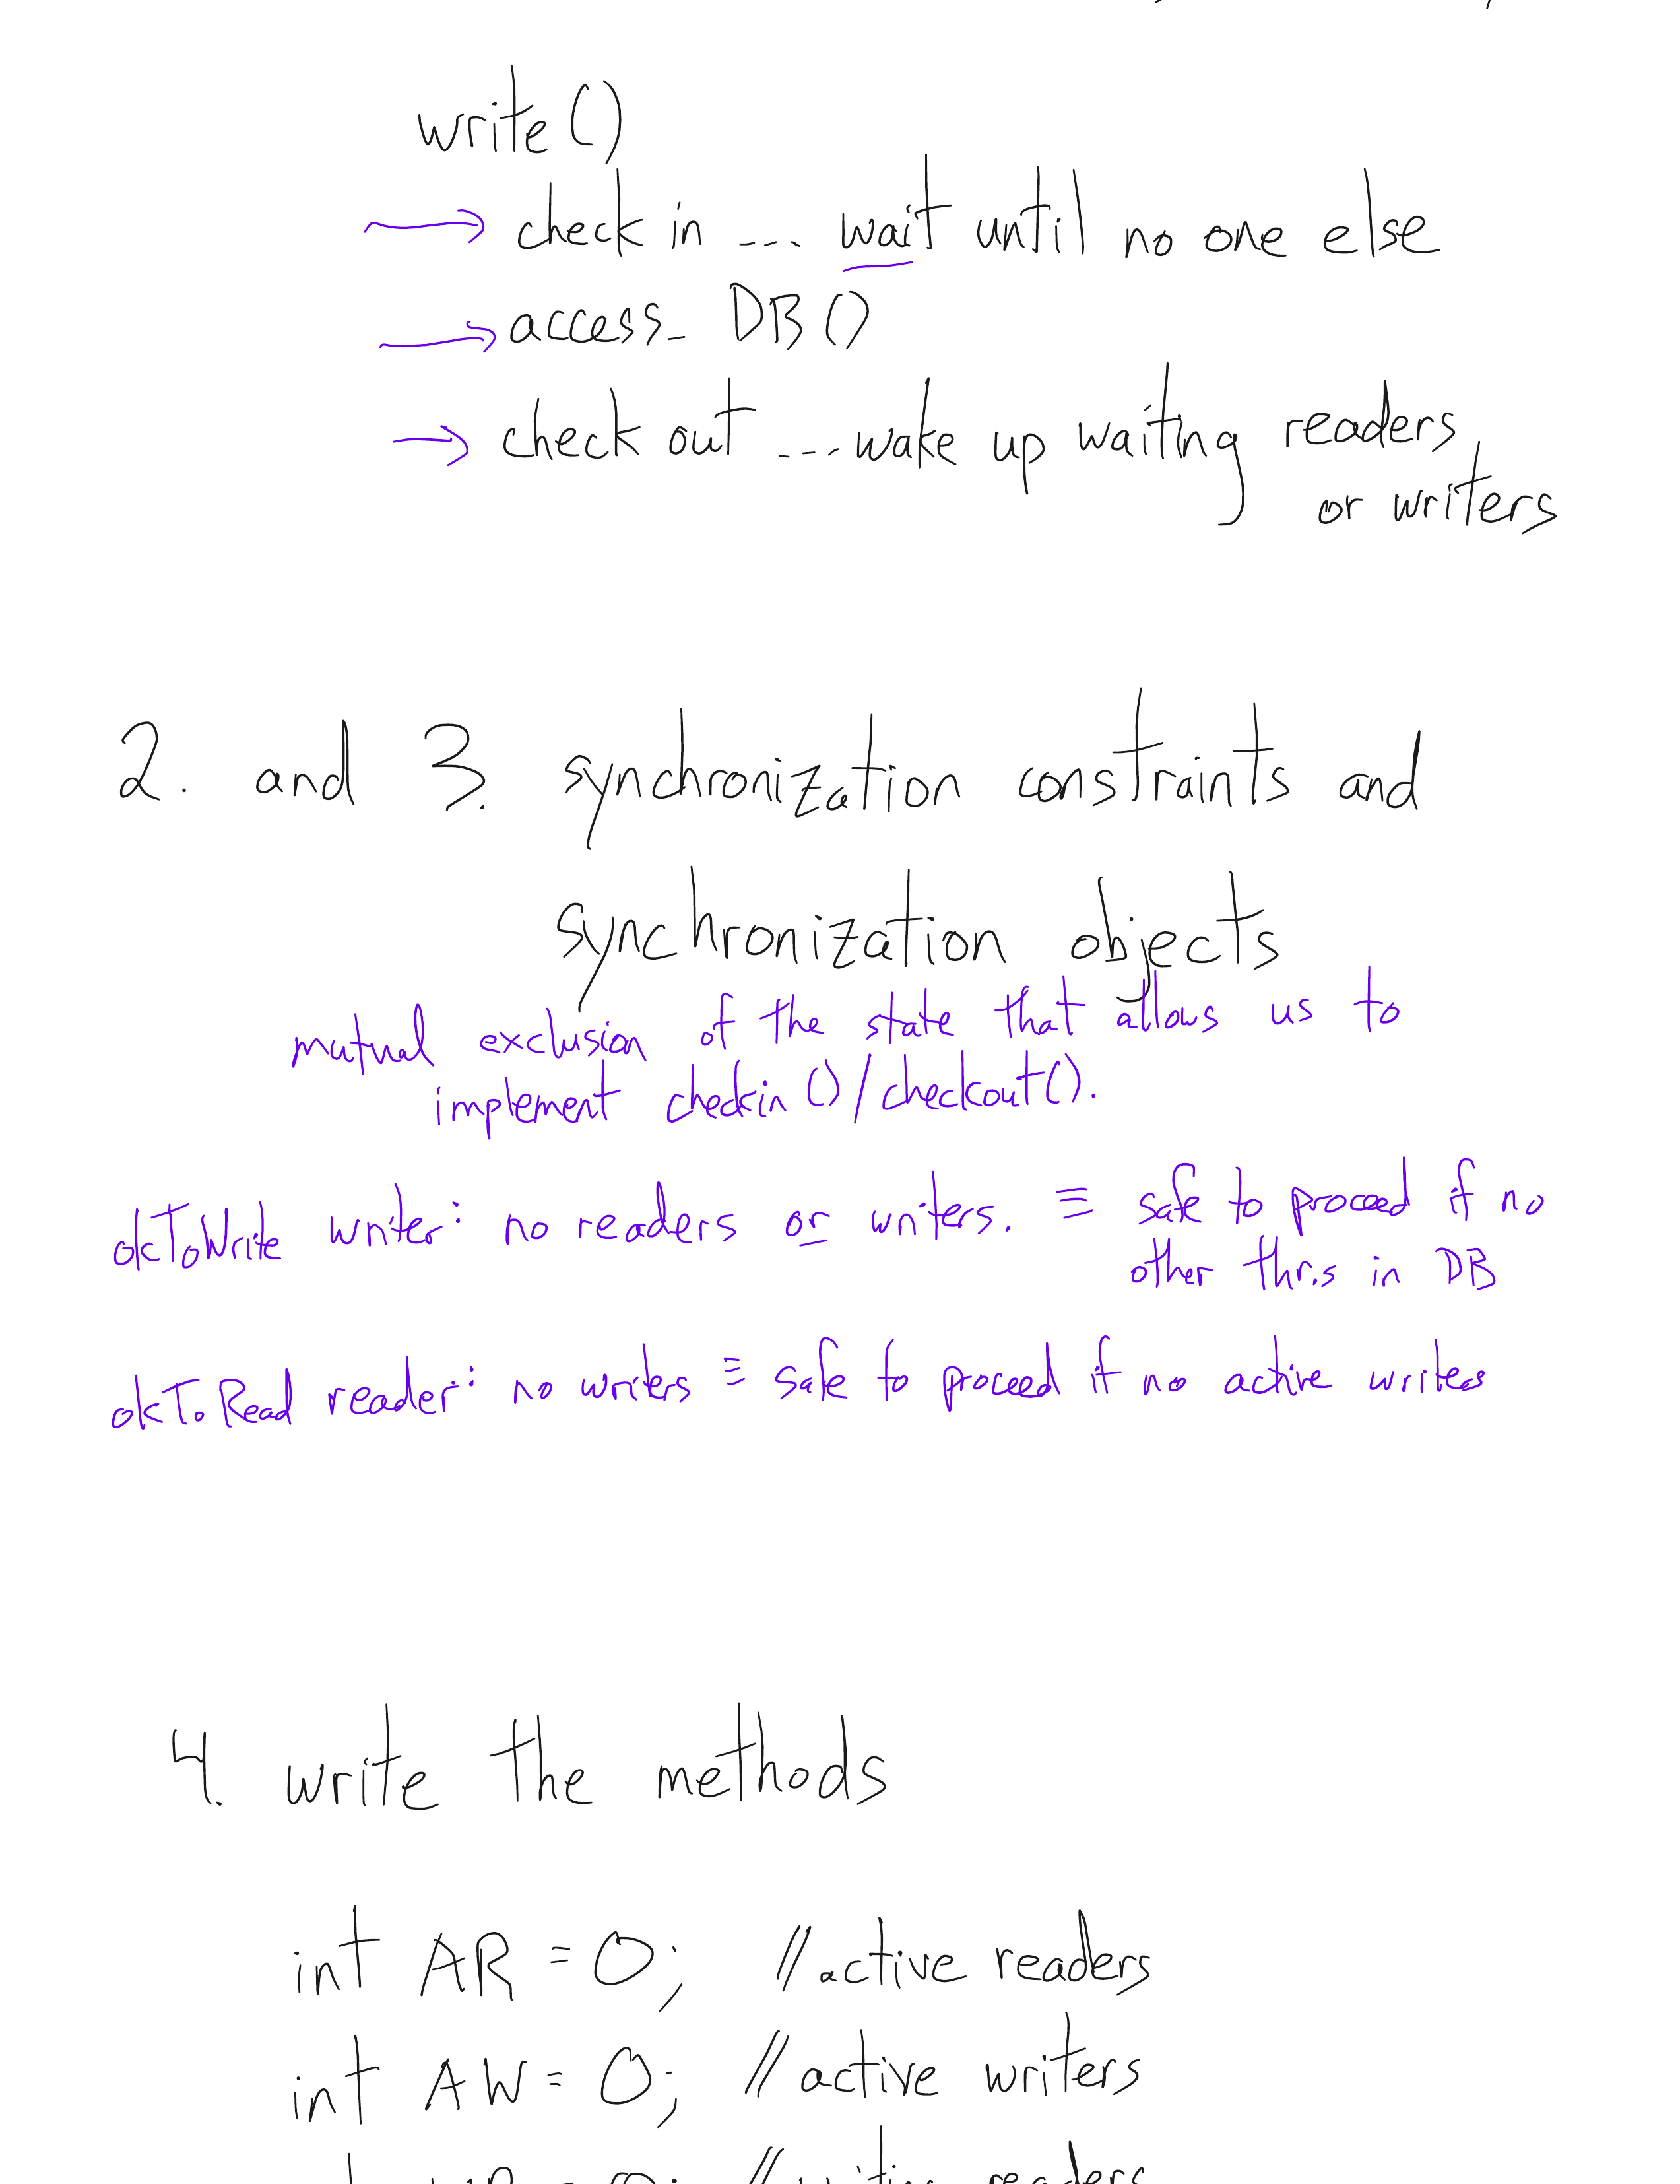 write()
check in --- wait until no one else
access_ DB()
check out ---. wake up waiting readers
or writers
2. and 3. synchronization constraints and
synchronization objects
mutual exclusion of the state that allows us to
implement checkin()/checkout().
okToWrite writer: no readers or writers. ≡ safe to proceed if no
other thr.s in DB
okToRead reader: no writers ≡ safe to proceed if no active writers
4. write the methods
int AR = 0; //active readers
int AW = 0; //active writers